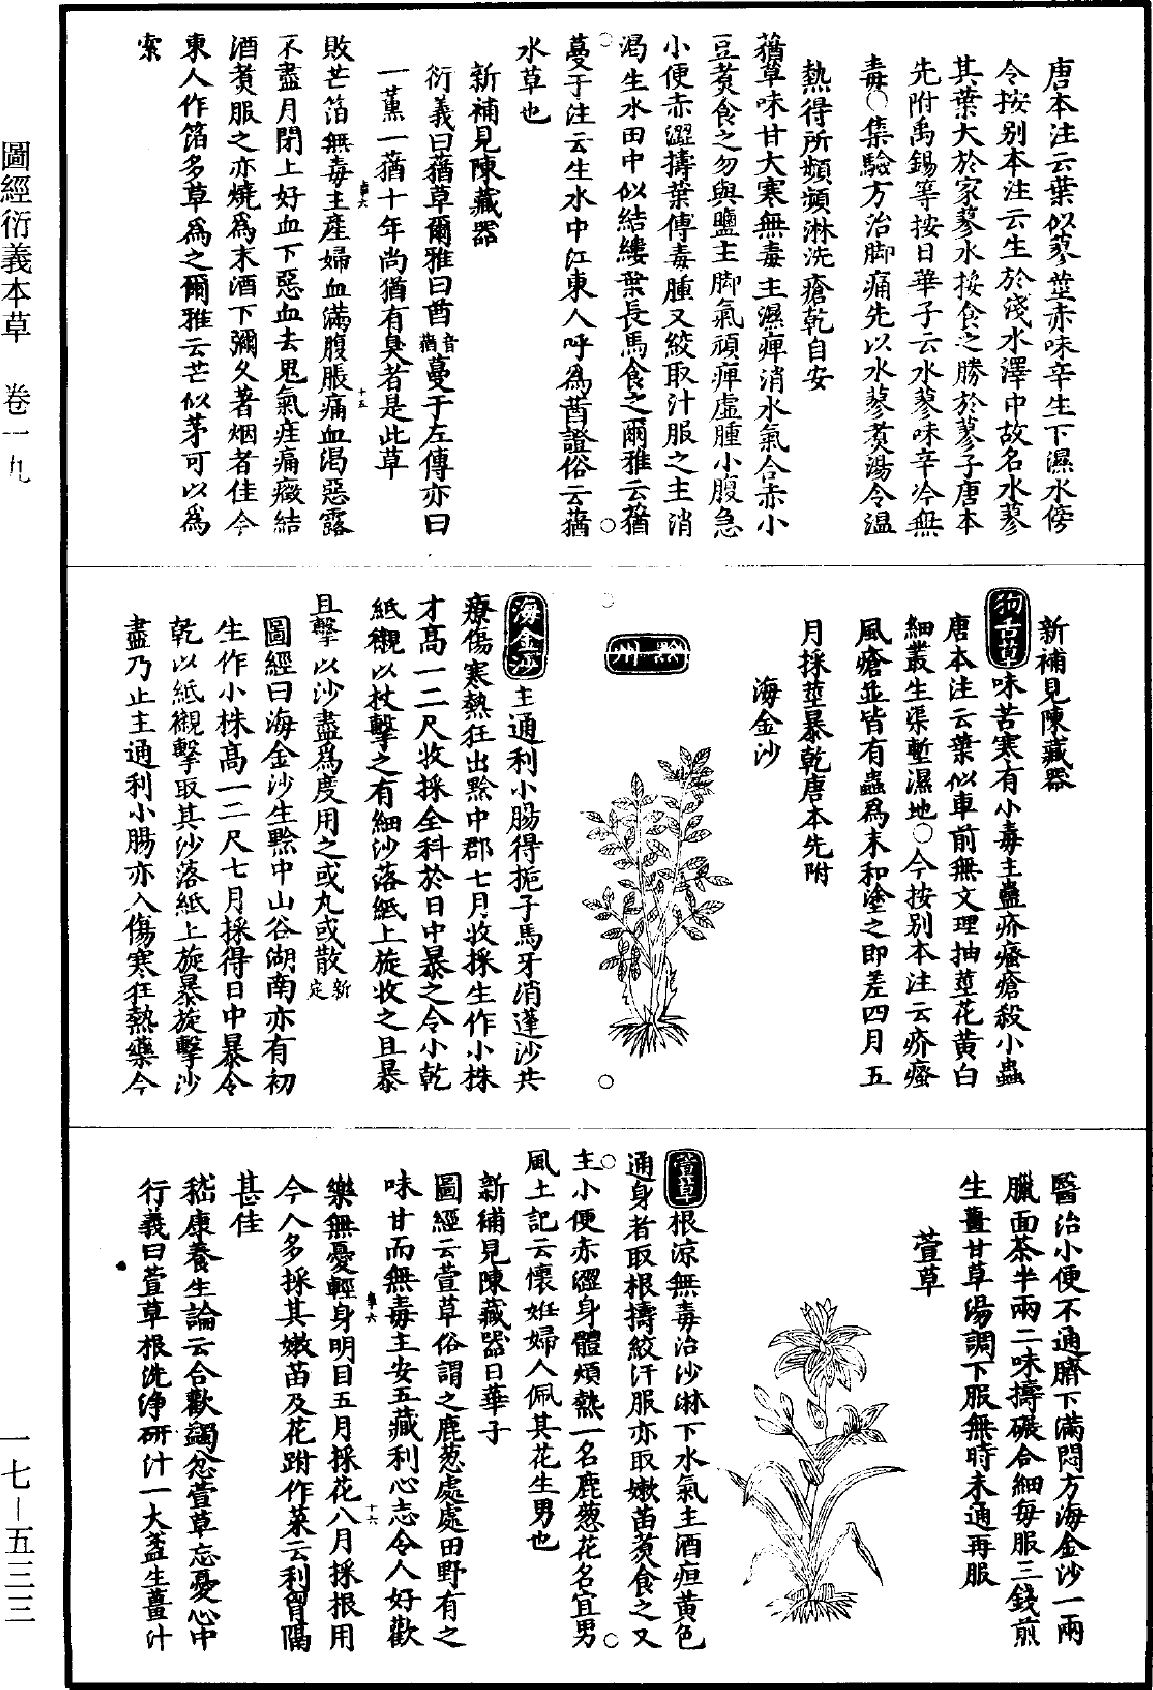 唐本注云葉似蓼莖赤味辛生下濕水傍
今按别本注云生於淺水澤中故名水蓼
其葉大於家蓼水挼食之勝於蓼子唐本
先附禹錫等按日華子云水蓼味辛冷無
毒○集驗方治脚痛先以水蓼煑湯令温
熱得所頻頻淋洗瘡乾自安
蕕草味甘大寒無毒主濕痺消水氣合赤小
豆煑食之勿與鹽主脚氣頑痺虚腫小腹急
小便赤澀擣葉傅毒腫又絞取汁服之主消
渴生水田中似結縷葉長馬食之爾雅云蕕
蔓于注云生水中江東人呼為莤證俗云蕕
水草也
新補見陳藏器
衍義曰蕕草爾雅曰莤音蕕蔓于左傳亦曰
一薰一蕕十年尚猶有臭者是此草
敗芒箔無毒主産婦血滿腹脹痛血渴惡露
不盡月閉上好血下惡血去鬼氣疰痛癥結
酒煑服之亦燒爲末酒下彌久著烟者佳今
東人作箔多草爲之爾雅云芒似茅可以爲
索
新補見陳藏器
狗舌草味苦寒有小毒主蠱疥瘙瘡殺小蟲
唐本注云葉似車前無文理抽莖花黄白
細叢生渠塹濕地○今按别本注云疥瘙
風瘡並皆有蟲爲末和塗之即差四月五
月採莖暴乾唐本先附
海金沙
黔州
海金沙主通利小腸得梔子馬牙消蓬沙共
療傷寒熱狂出黔中郡七月收採生作小株
才高一二尺收採全科於日中暴之令小乾
紙襯以杖擊之有細沙落紙上旋收之且暴
且擊以沙盡爲度用之或丸或散新定
圖經曰海金沙生黔中山谷湖南亦有初
生作小株高一二尺七月採得日中暴令
乾以紙襯擊取其沙落紙上旋暴旋擊沙
盡乃止主通利小腸亦入傷寒狂熱藥今
醫治小便不通臍下滿悶方海金沙一兩
臘面茶半兩二味擣碾合細每服三錢煎
生薑甘草湯調下服無時未通再服
萱草
萱草根凉無毒治沙淋下水氣主酒疸黄色
通身者取根擣絞汁服亦取嫩苗煑食之又
主小便赤澀身體煩熱一名鹿葱花名宜男
風土記云懷姙婦人佩其花生男也
新補見陳藏器日華子
圖經云萱草俗謂之鹿葱處處田野有之
味甘而無毒主安五藏利心志令人好歡
樂無憂輕身明目五月採花八月採根用
今人多採其嫩苗及花跗作菜云利胷膈
甚佳
嵇康養生論云合歡蠲忿萱草忘憂心中
衍義曰萱草根洗浄研汁一大盞生薑汁
圖經衍義本草　卷一九
一七—五三三